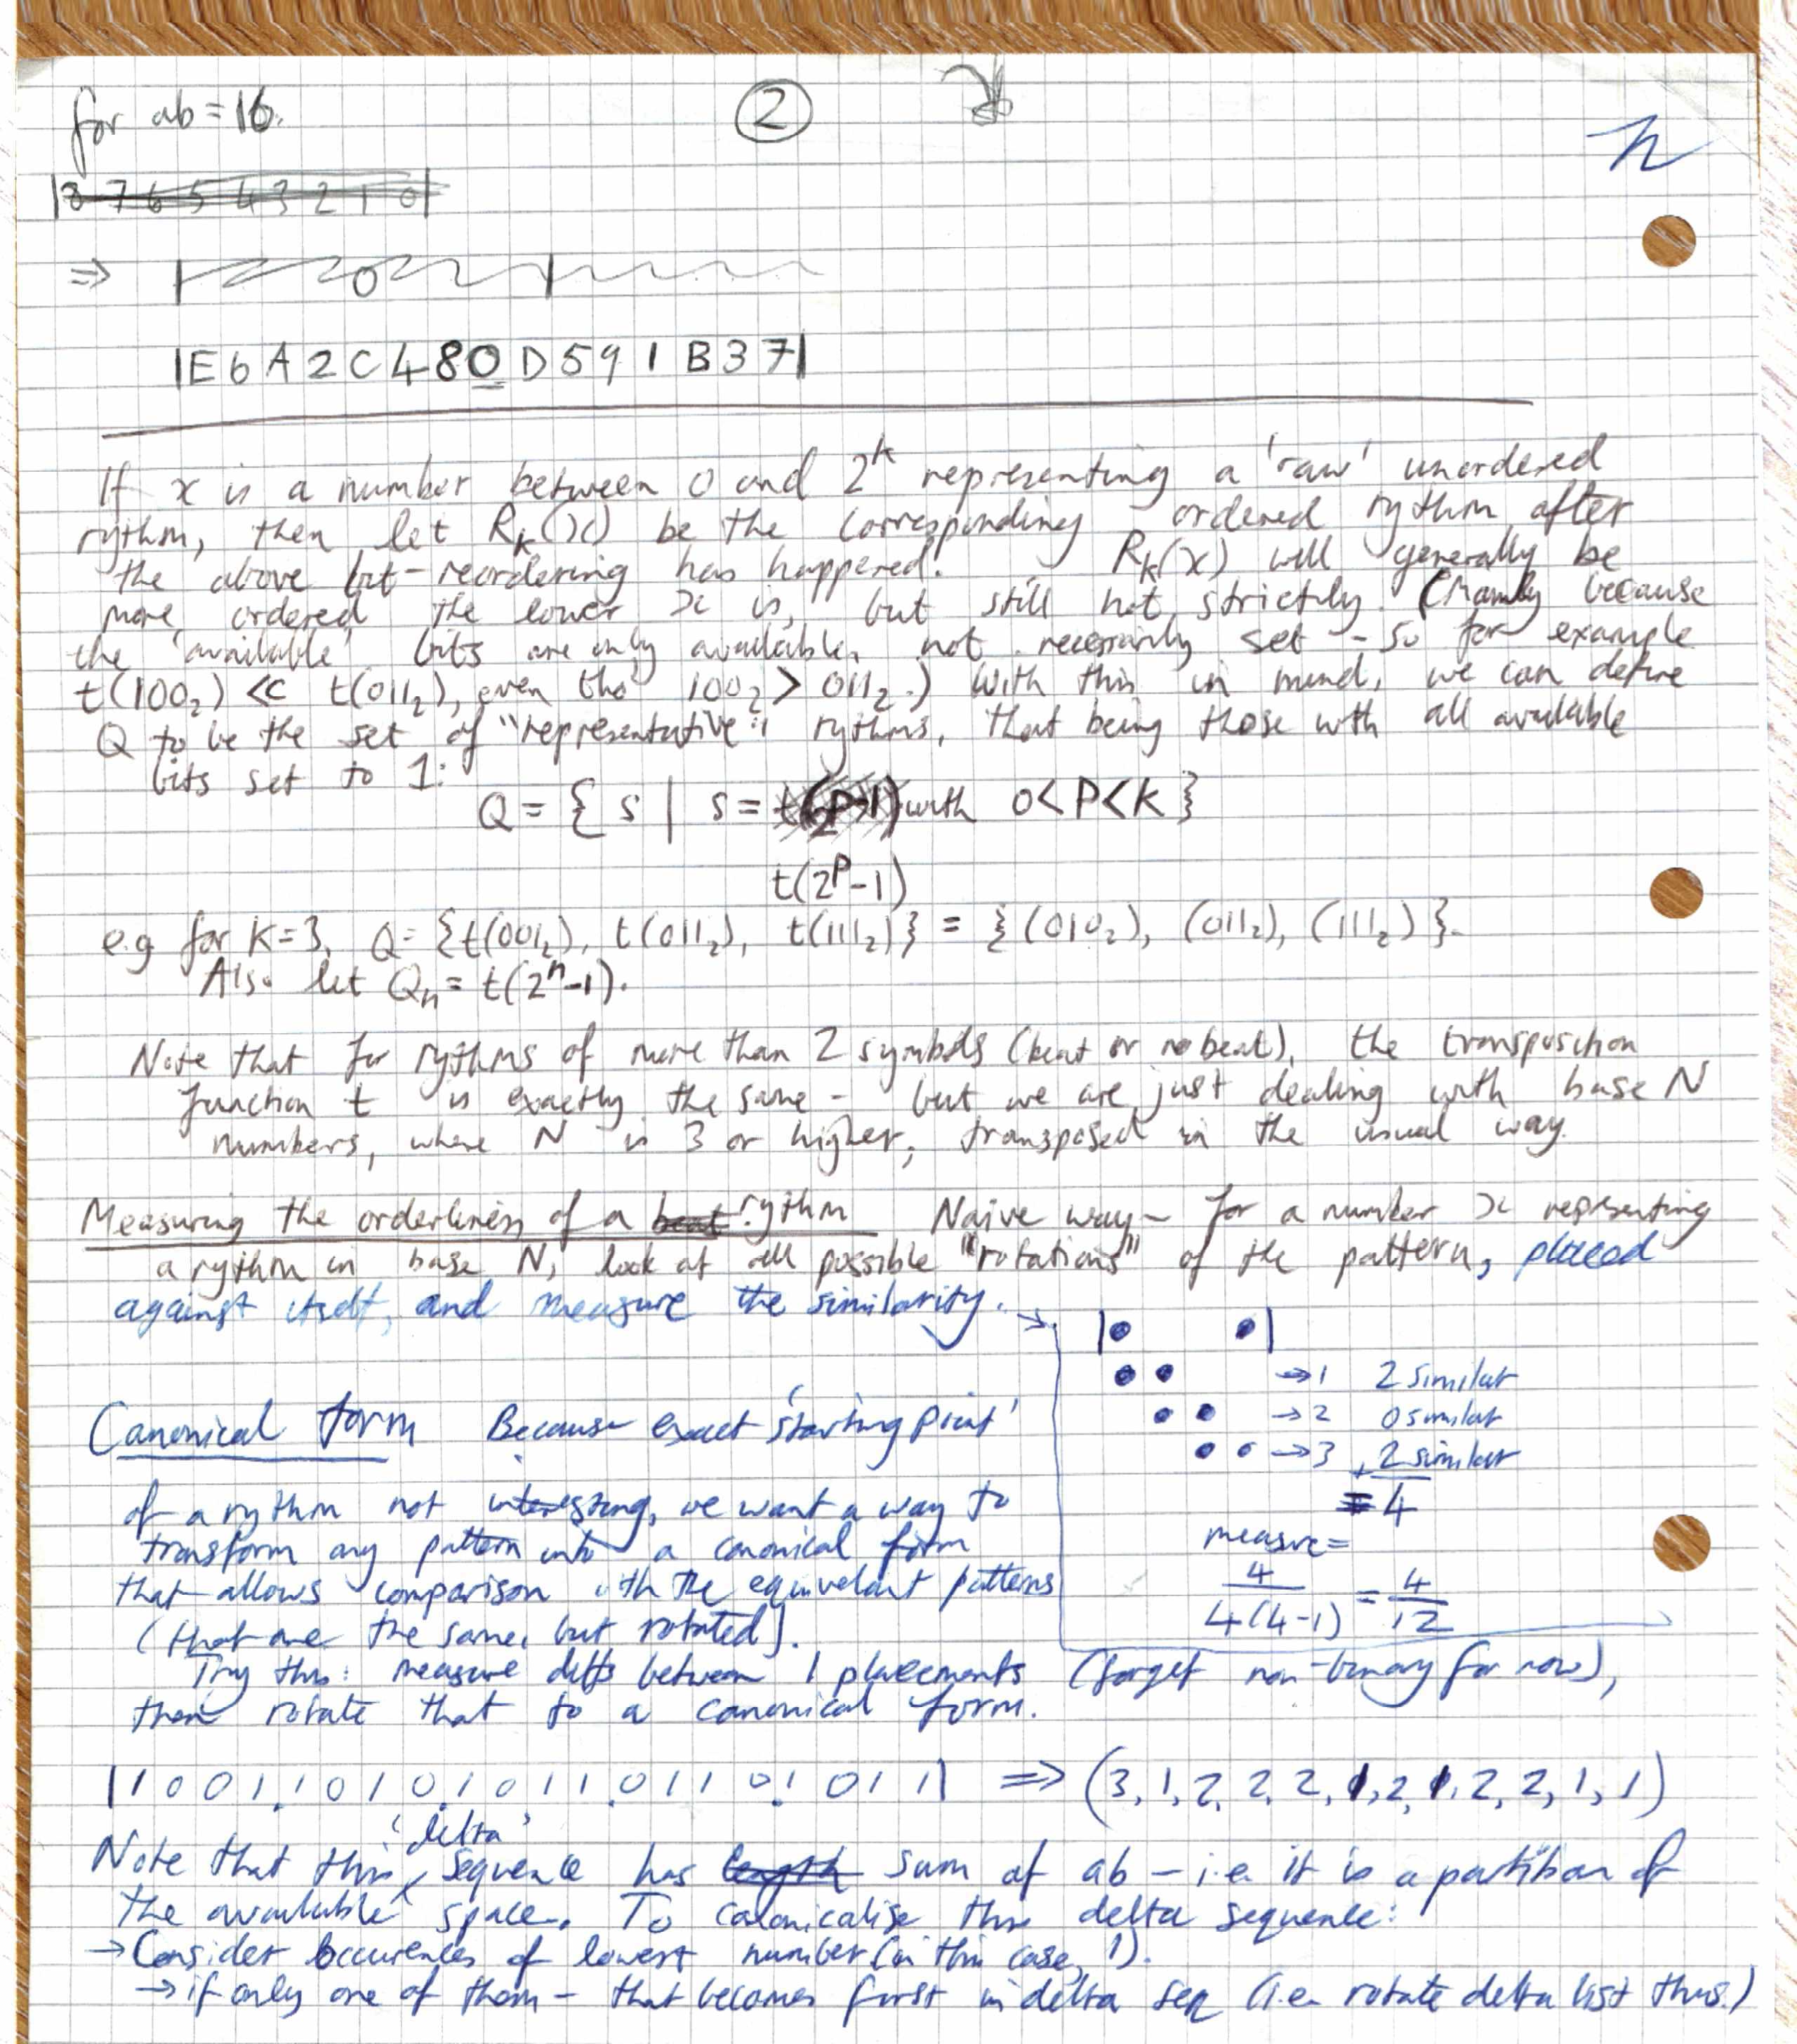 for ab = 16.
②
n
|8 7 6 5 4 3 2 1 0|
⇒
|E 6 A 2 C 4 8 0 D 5 9 1 B 3 7|
If x is a number between 0 and 2^k representing a 'raw' unordered
rythm, then let R_k(x) be the corresponding ordered rythm after
the above bit-reordering has happened. R_k(x) will generally be
more ordered the lower x is, but still not strictly. (Mainly because
the 'available' bits are only available, not necessarily set - so for example
t(100₂) << t(011₂), even tho' 100₂ > 011₂.) With this in mind, we can define
Q to be the set of "representative" rythms, that being those with all available
bits set to 1:
Q = { s | s = with 0 < P < K }
t(2^P-1)
e.g for K=3, Q = {t(001₂), t(011₂), t(111₂)} = {(010₂), (011₂), (111₂)}.
Also let Q_n = t(2^n-1).
Note that for rythms of more than 2 symbols (beat or no beat), the transposition
function t is exactly the same - but we are just dealing with base N
numbers, where N is 3 or higher, transposed in the usual way.
Measuring the orderliness of a beat rythm Naive way - for a number x representing
a rythm in base N, look at all possible "rotations" of the pattern, placed
against itself, and measure the similarity. →
|• •|
• • →1 2 similar
• • →2 0 similar
• • →3 + 2 similar
= 4
measure =
4/4(4-1) = 4/12
Canonical form Because exact 'starting point'
of a rythm not interesting, we want a way to
transform any pattern into a canonical form
that allows comparison with the equivelant patterns
(that are the same, but rotated).
Try this: measure diffs between 1 placements (forget non-binary for now),
then rotate that to a canonical form.
|1 0 0 1 . 1 0 1 0 . 1 0 1 1 . 0 1 1 0 . 1 0 1 1| ⇒ (3, 1, 2, 2, 2, 1, 2, 1, 2, 2, 1, 1)
'delta'
Note that this sequence has length sum of ab - i.e. it is a partition of
the available space. To canonicalise this delta sequence:
→ Consider occurences of lowest number (in this case, 1).
→ if only one of them - that becomes first in delta seq (i.e. rotate delta list thus.)